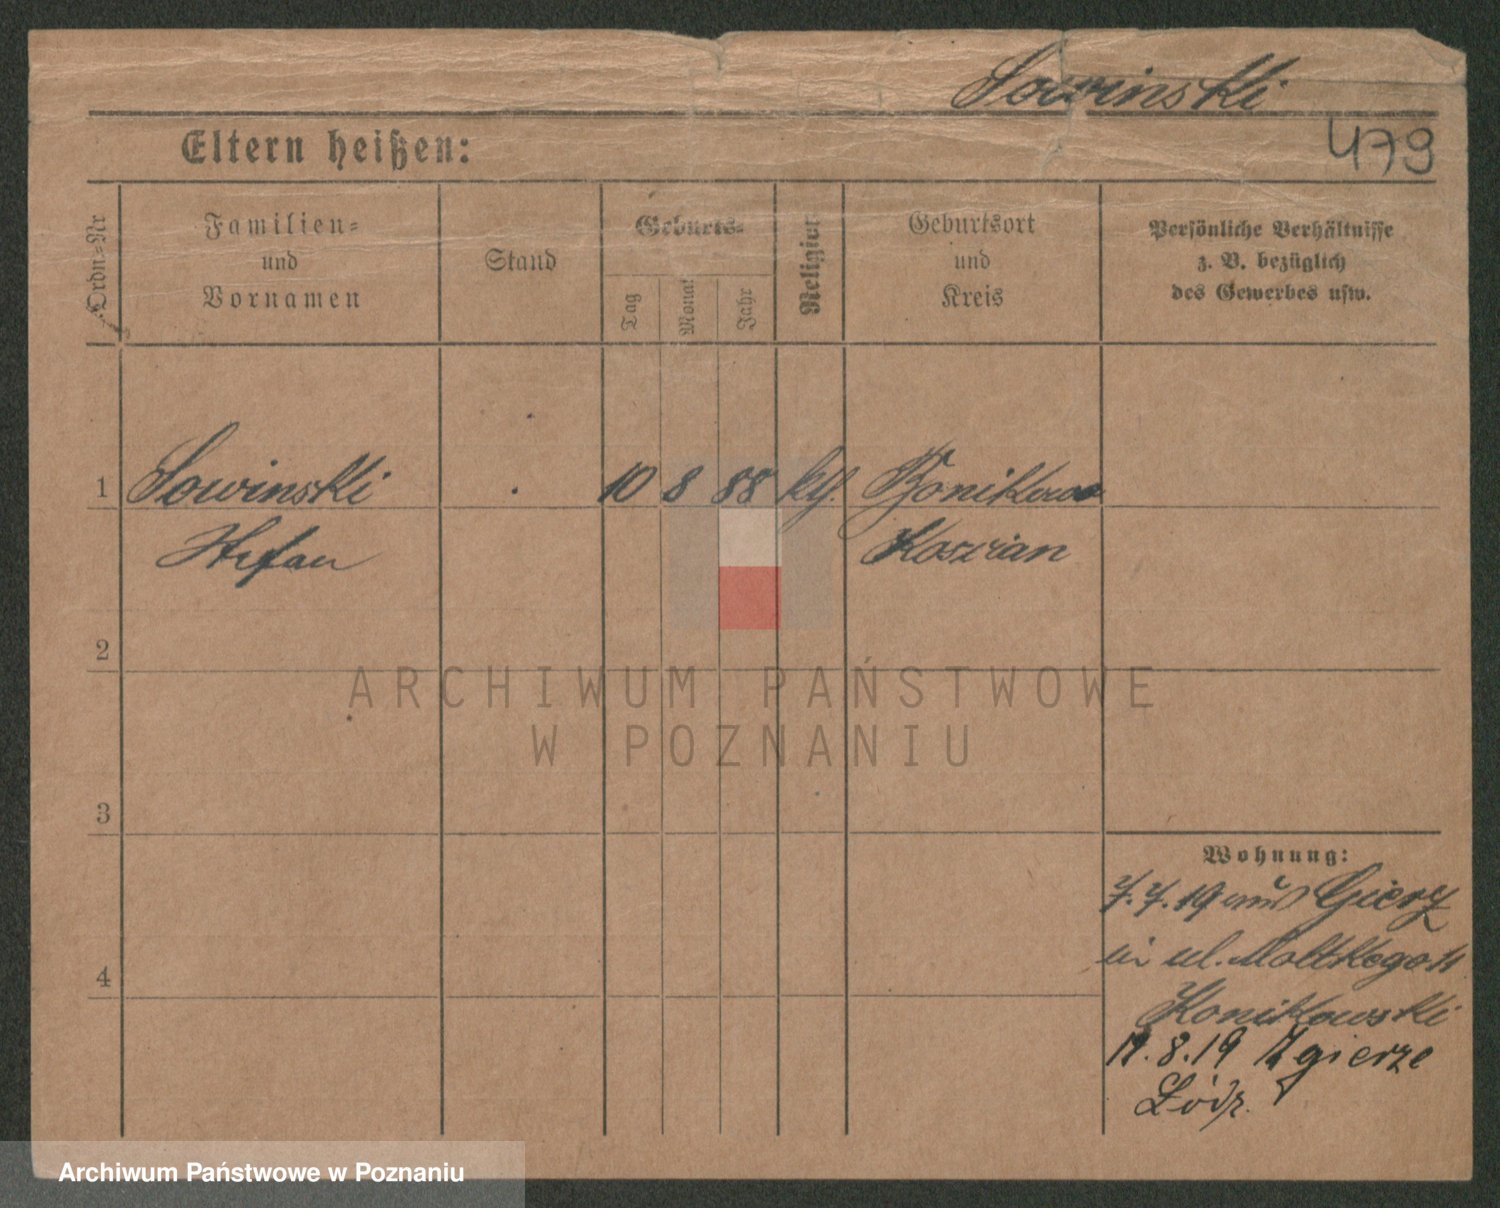 Sowinski
Eltern heißen:
479
Ordn.=Nr
Familien=
und
Vornamen
Stand
Geburts=
Tag
Monat
Jahr
Religion
Geburtsort
und
Kreis
Persönliche Verhältnisse
z. B. bezüglich
des Gewerbes usw.
1 Sowinski 10 8 88 ktf. Bonikowo
Stefan Koszian
2
ARCHIWUM PAŃSTWOWE
W POZNANIU
3
Wohnung:
7.7.19 aus
ul. Moltkego
4
Konikowski
8.19 Zgierze
Łódz.
Archiwum Państwowe w Poznaniu